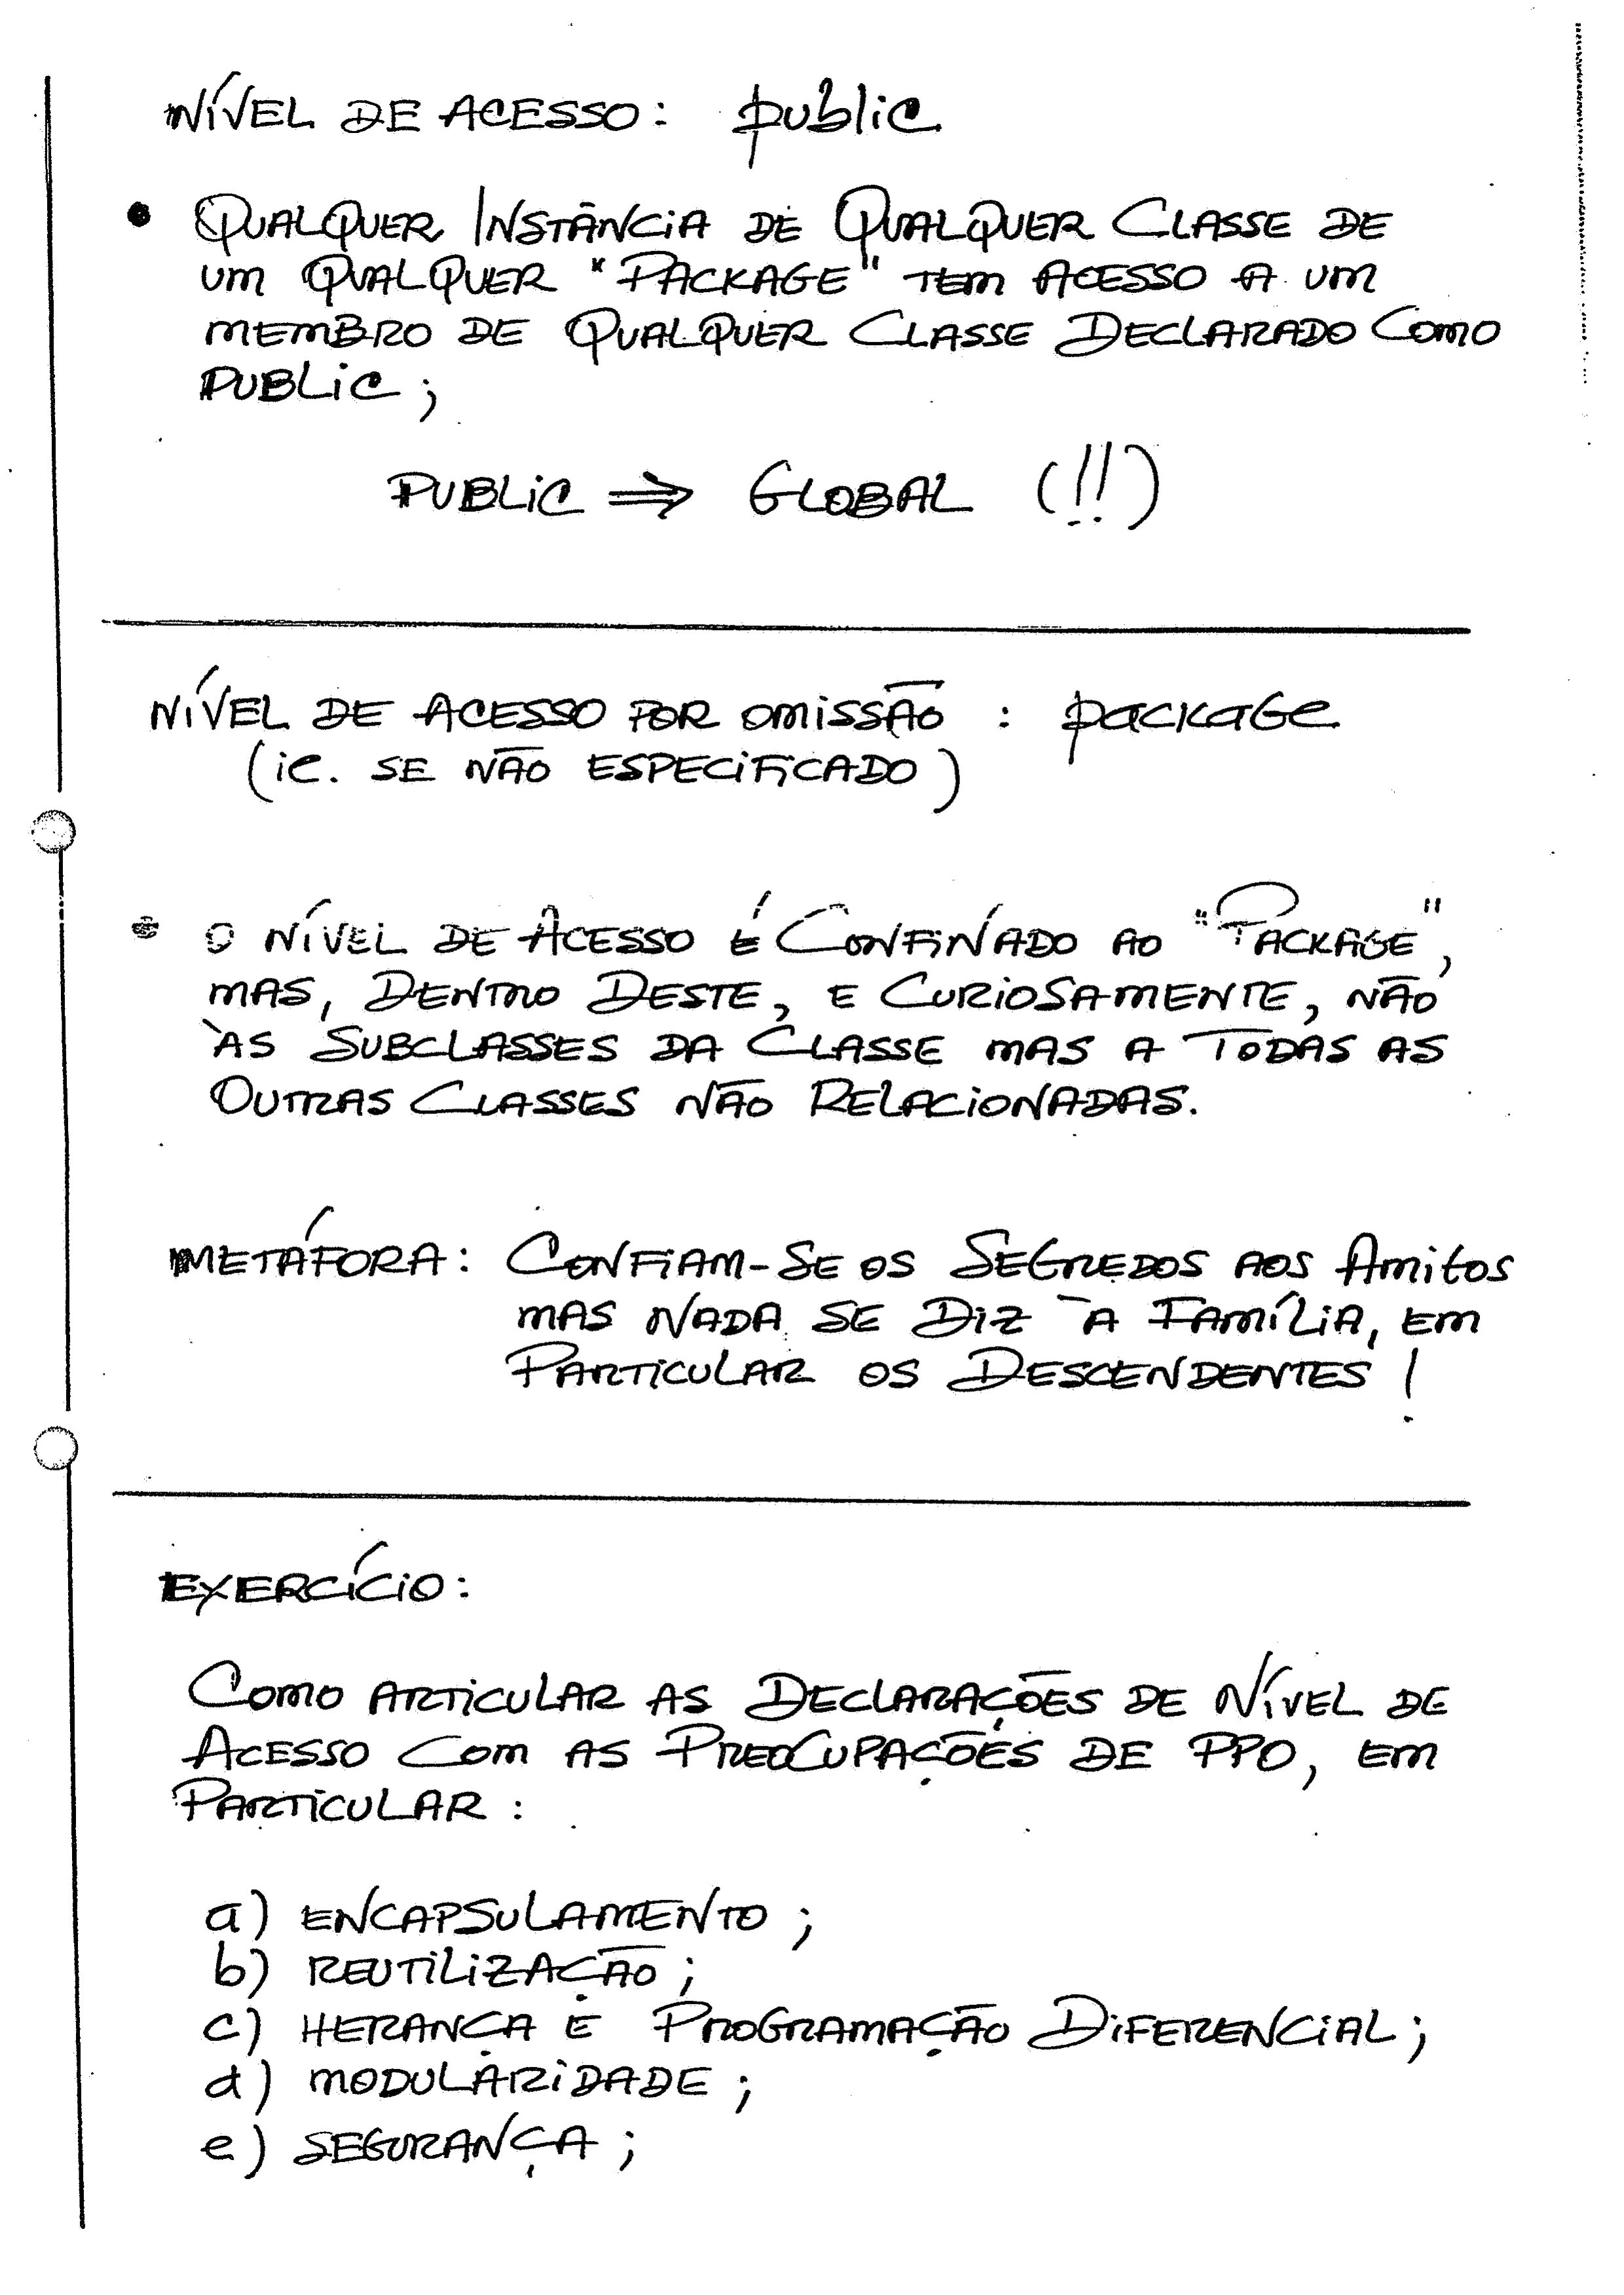 NÍVEL DE ACESSO: public
• QUALQUER INSTÂNCIA DE QUALQUER CLASSE DE
UM QUALQUER "PACKAGE" TEM ACESSO A UM
MEMBRO DE QUALQUER CLASSE DECLARADO COMO
PUBLIC;
PUBLIC ⇒ GLOBAL (!!)
NÍVEL DE ACESSO POR OMISSÃO : package
(ie. SE NÃO ESPECIFICADO)
• O NÍVEL DE ACESSO É CONFINADO AO "PACKAGE",
MAS, DENTRO DESTE, E CURIOSAMENTE, NÃO
ÀS SUBCLASSES DA CLASSE MAS A TODAS AS
OUTRAS CLASSES NÃO RELACIONADAS.
METÁFORA: CONFIAM-SE OS SEGREDOS AOS AMIGOS
MAS NADA SE DIZ À FAMÍLIA, EM
PARTICULAR OS DESCENDENTES!
EXERCÍCIO:
COMO ARTICULAR AS DECLARAÇÕES DE NÍVEL DE
ACESSO COM AS PREOCUPAÇÕES DE PPO, EM
PARTICULAR:
a) ENCAPSULAMENTO;
b) REUTILIZAÇÃO;
c) HERANÇA E PROGRAMAÇÃO DIFERENCIAL;
d) MODULARIDADE;
e) SEGURANÇA;